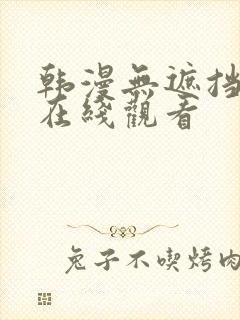 韩漫無遮挡
在綫觀看
兔子不喫烤肉